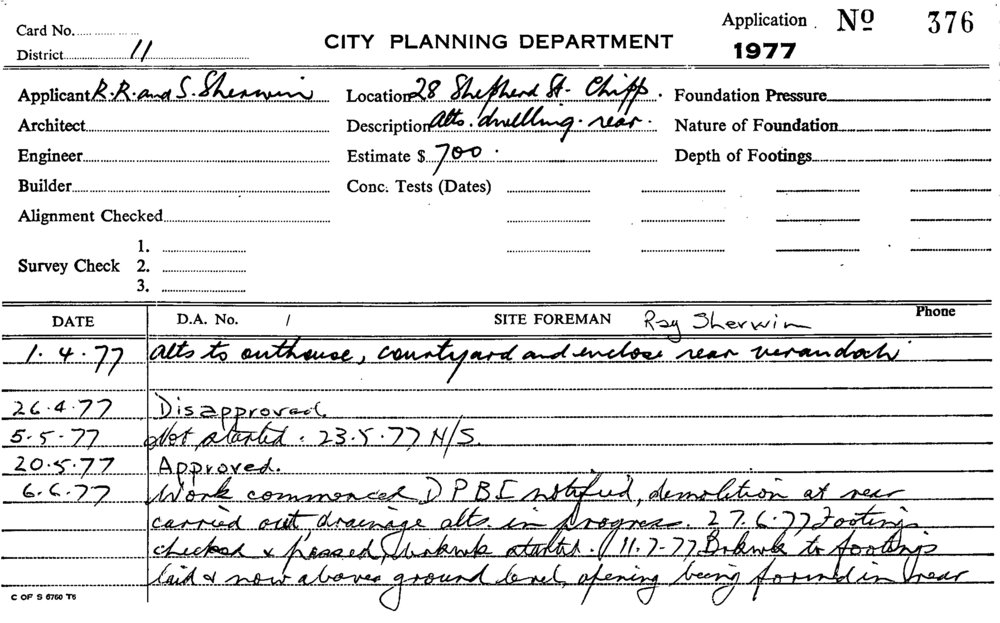 Card No.
District 11
CITY PLANNING DEPARTMENT
Application No 376
1977
Applicant R.R. and S. Sherwin
Location 28 Shepherd St. Chipp.
Foundation Pressure
Architect
Description Alts. dwelling. rear.
Nature of Foundation
Engineer
Estimate $ 700.
Depth of Footings
Builder
Conc. Tests (Dates)
Alignment Checked
Survey Check 1.
2.
3.
DATE D.A. No. / SITE FOREMAN Ray Sherwin Phone
1.4.77 Alts to outhouse, courtyard and enclose rear verandah
26.4.77 Disapproved.
5.5.77 Not started. 23.5.77 N/S.
20.5.77 Approved.
6.6.77 Work commenced D P B I notified, demolition at rear
carried out, drainage alts. in progress. 27.6.77 Footings
checked & passed, brkwk started. 11.7.77 Brkwk to footings
laid & now above ground level, opening being formed in rear
C OF S 6760 T6